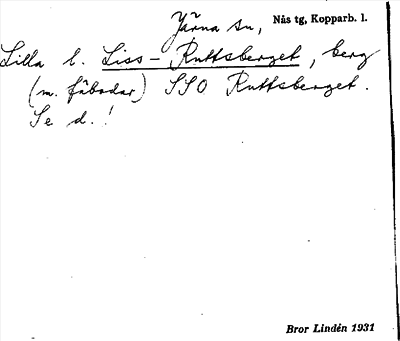 Järna sn, Nås tg, Kopparb. l.
Lilla l. Liss-Ruttsberget, berg
(m. fäbodar) SSO Ruttsberget.
Se d.!
Bror Lindén 1931